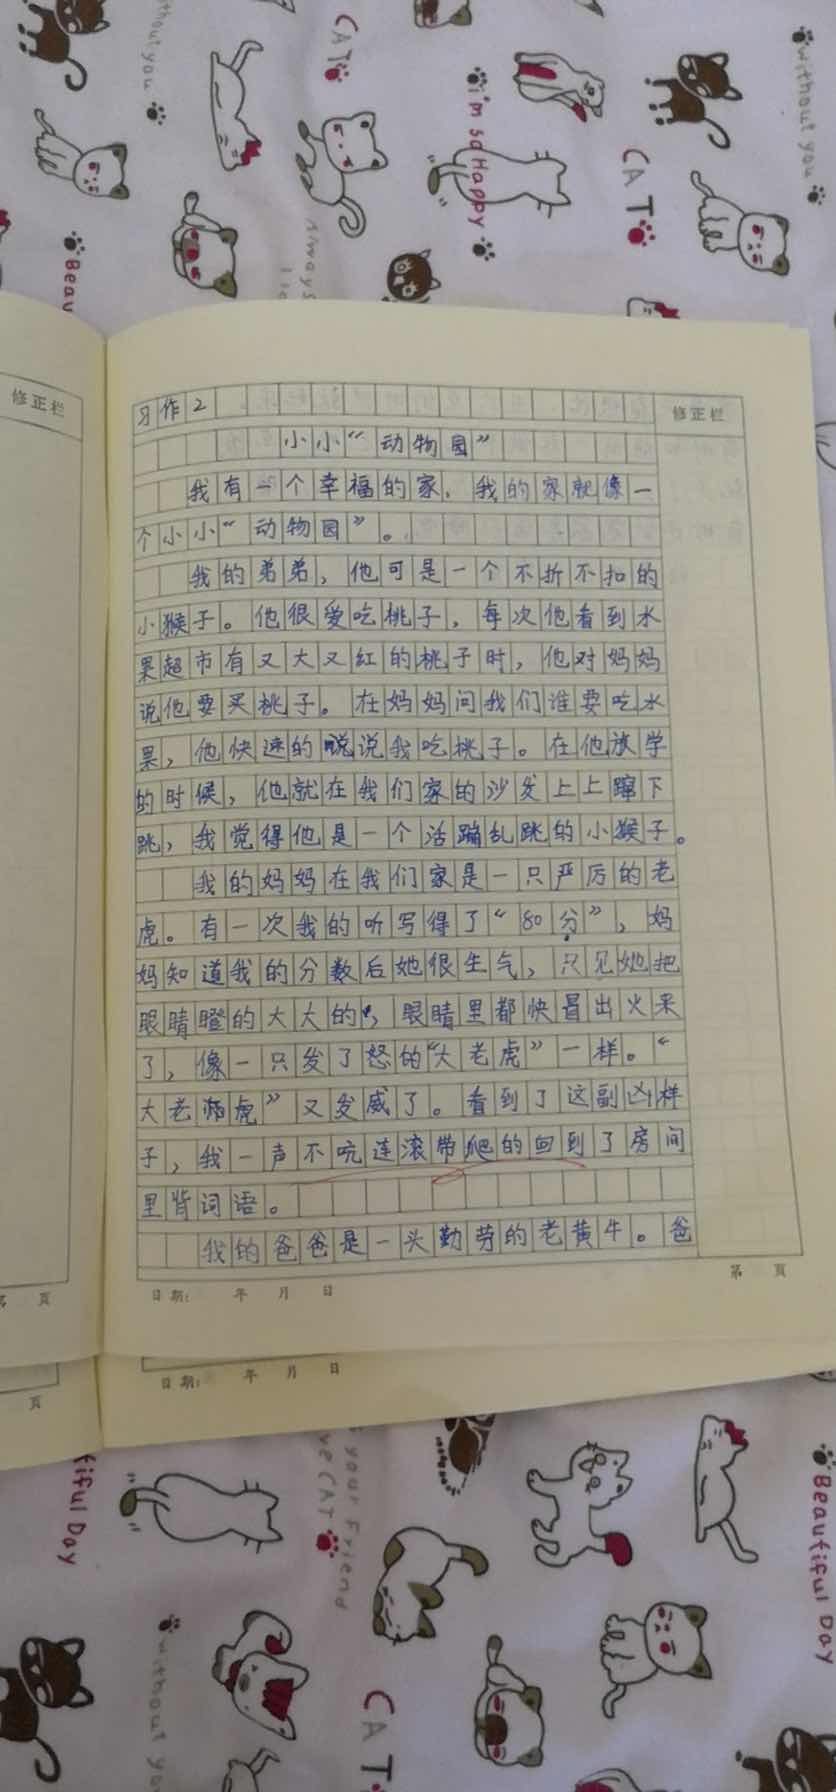 CAT
without you
without you
I'm so Happy
CAT
Always
Beau
修正栏
修正栏
习作2
小小“动物园”
我有一个幸福的家，我的家就像一
个小小“动物园”。
我的弟弟，他可是一个不折不扣的
小猴子。他很爱吃桃子，每次他看到水
果超市有又大又红的桃子时，他对妈妈
说他要买桃子。在妈妈问我们谁要吃水
果，他快速的说说我吃桃子。在他放学
的时候，他就在我们家的沙发上上蹿下
跳，我觉得他是一个活蹦乱跳的小猴子。
我的妈妈在我们家是一只严厉的老
虎。有一次我的听写得了“80分”，妈
妈知道我的分数后她很生气，只见她把
眼睛瞪的大大的，眼睛里都快冒出火来
了，像一只发了怒的“大老虎”一样。“
大老虎”又发威了。看到了这副凶样
子，我一声不吭连滚带爬的回到了房间
里背词语。
我的爸爸是一头勤劳的老黄牛。爸
第 页
日期: 年 月 日
页
日期: 年 月 日
页
tiful Day
your Friend
ve CAT
Beautiful Day
without you
CAT